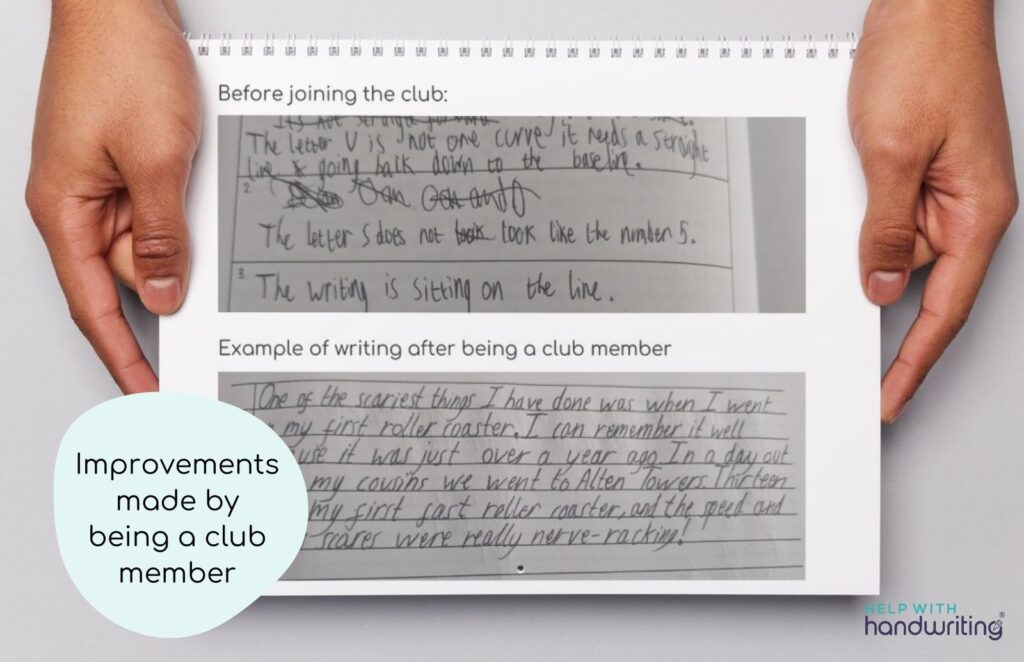 Before joining the club:
It's not straight forward
The letter U is not one curve it needs a straight
line & going back down to the baseline.
2.
The letter S does not look look like the number 5.
3. The writing is sitting on the line.
Example of writing after being a club member
One of the scariest things I have done was when I went
my first roller coaster. I can remember it well
use it was just over a year ago. In a day out
my cousins we went to Alten Towers. Thirteen
my first fast roller coaster, and the speed and
scares were really nerve-racking!
Improvements
made by
being a club
member
HELP WITH
handwriting®